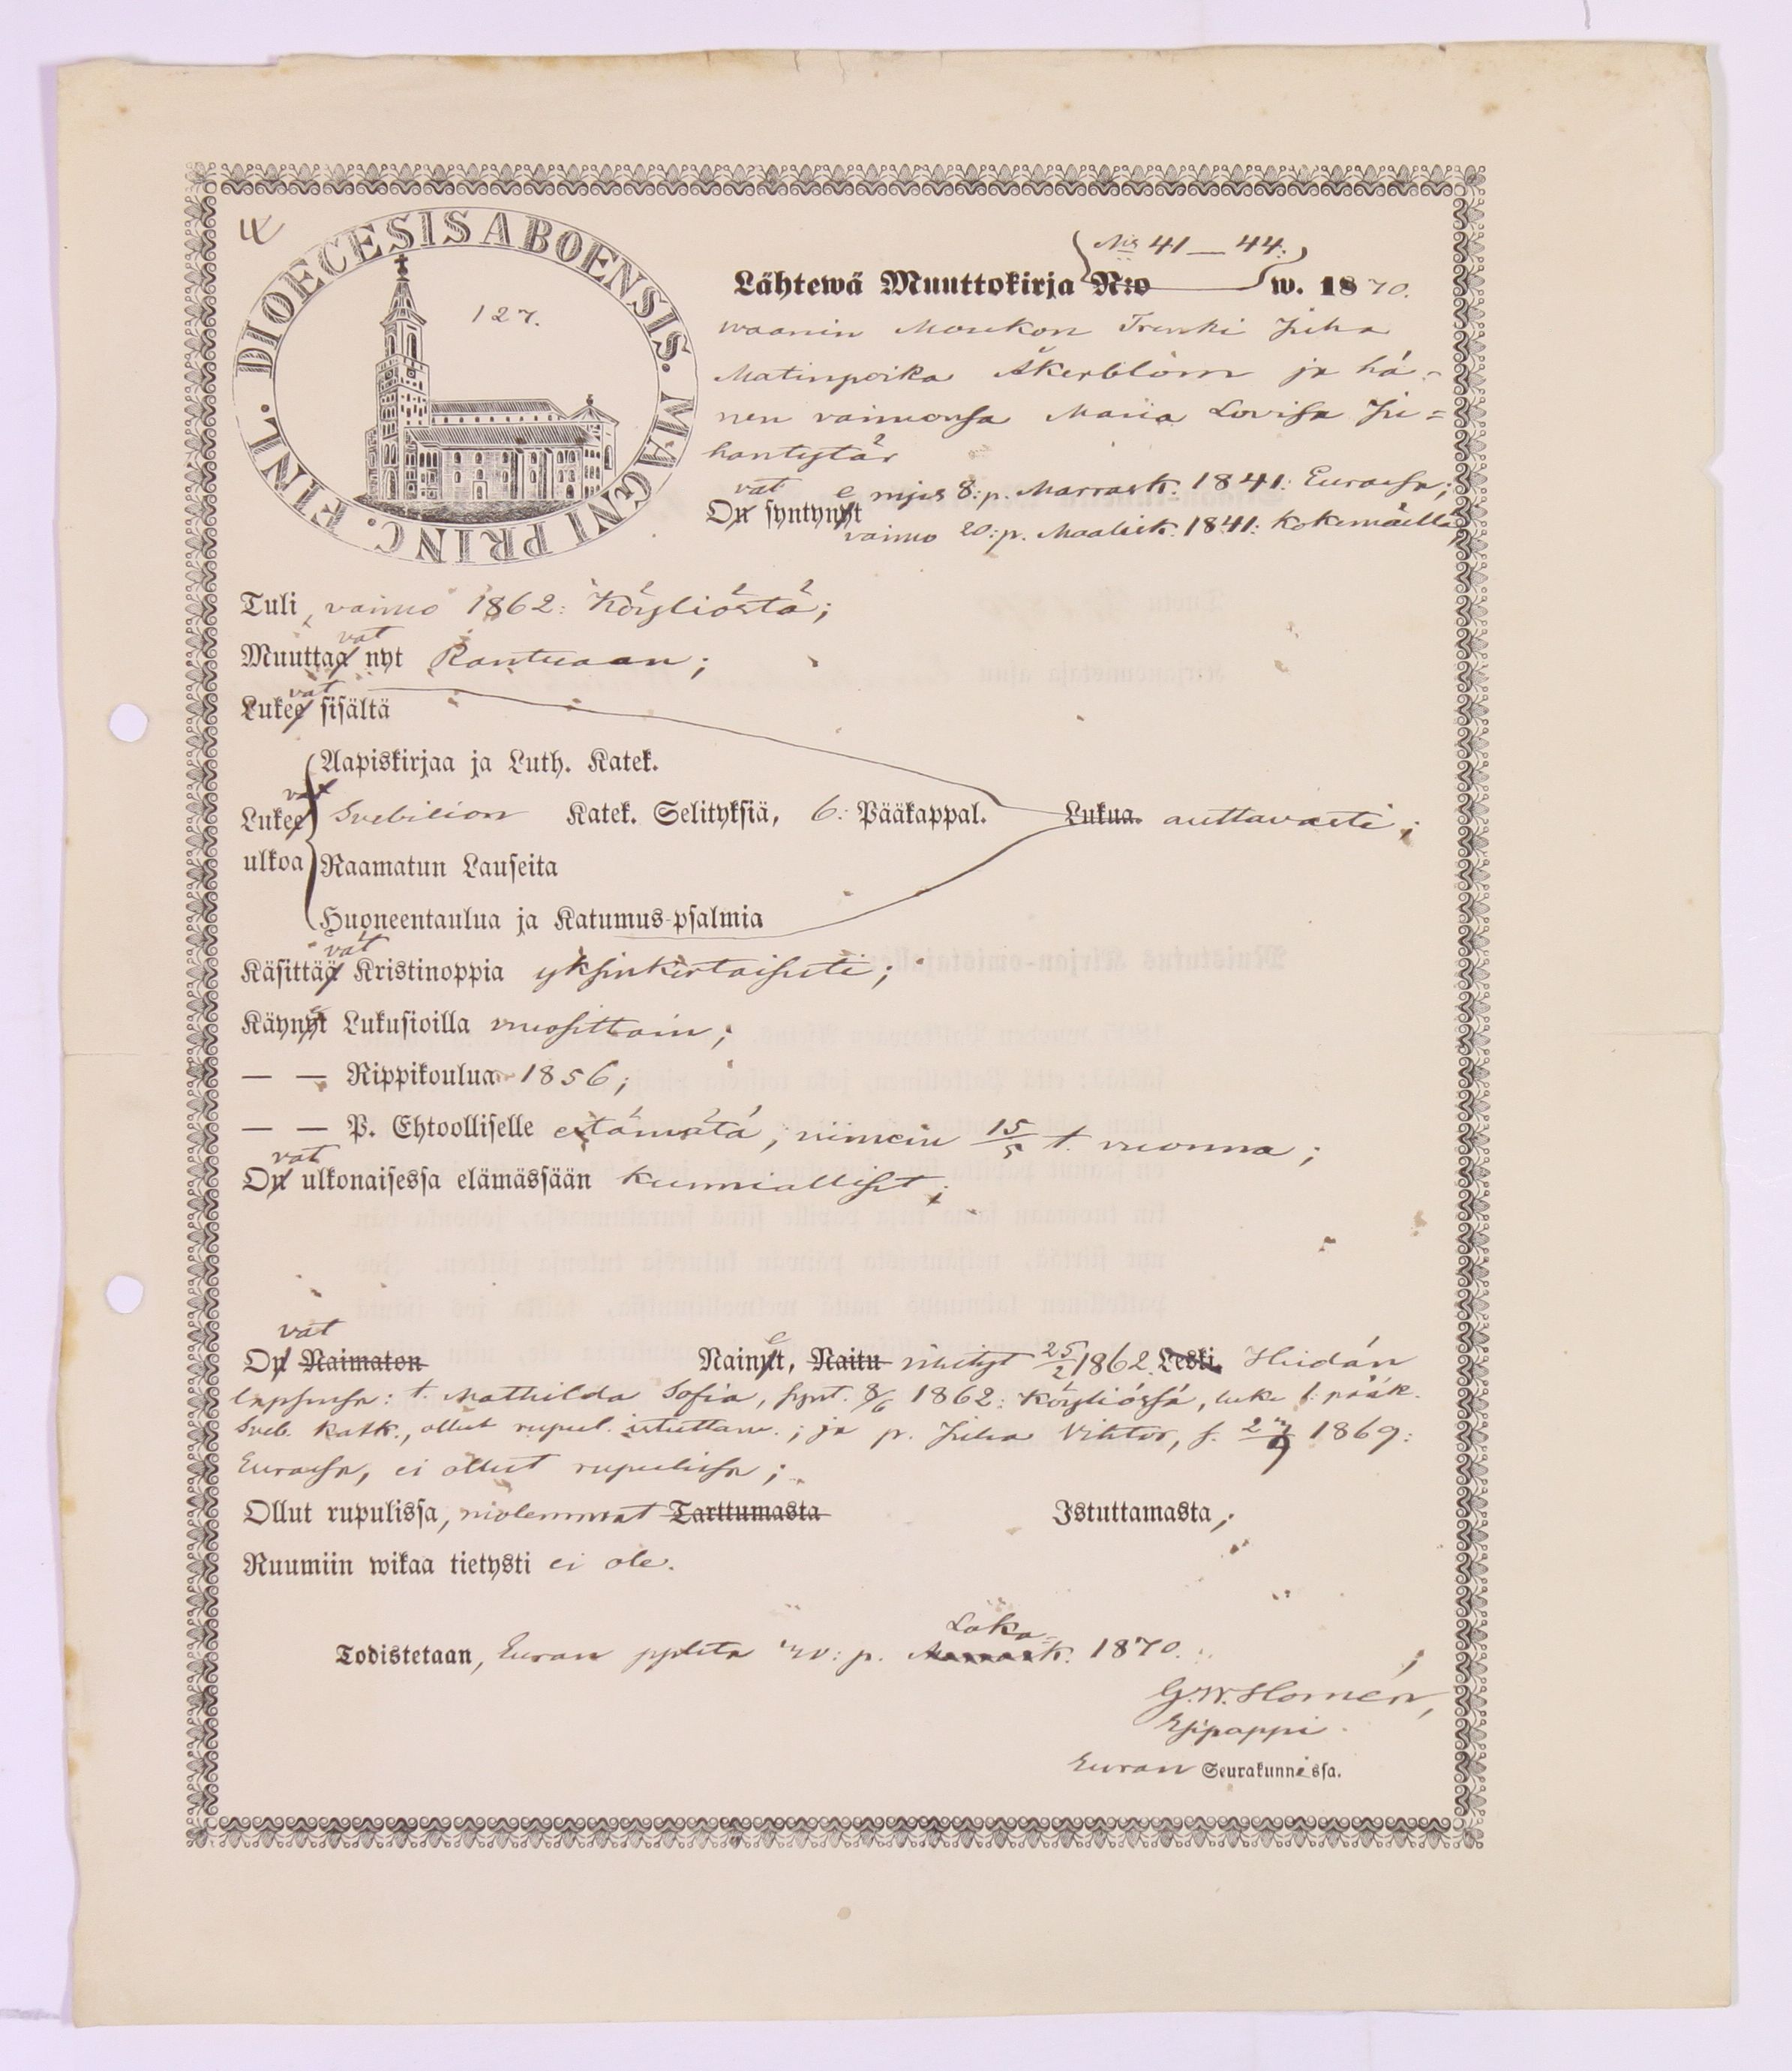 DIOECESIS ABOENSIS. MAGNI PRINC. FINL.
127.
N:is 41 — 44:
Lähtewä Muuttokirja N:o w. 1870.
Juha
Matinpoika Åkerblom ja hä-
nen vaimonsa Maria Lovisa Ju-
hantytär
vat e mies 8: p. Marrask. 1841: Eurassa;
On syntynyt
vaimo 20: p. Maalisk. 1841: Kokemäellä;
Tuli, vaimo 1862: Köyliöstä;
vat
Muuttaa nyt Rantuaan;
vat
Lukee sisältä
Aapiskirjaa ja Luth. Katek.
vat
Lukee Svebilion Katek. Selityksiä, 6: Pääkappal. Lukua. auttavasti;
ulkoa Raamatun Lauseita
Huoneentaulua ja Katumus-psalmia
vat
Käsittää Kristinoppia yksinkertaisesti;
Käynyt Lukusioilla vuosittain;
— — Rippikoulua 1856;
— — P. Ehtoolliselle estämätä, viimein 15/5 t. vuonna;
vat
On ulkonaisessa elämässään kunnialliset;
vat
On Naimaton Nainyt, Naitu vihityt 25/2 1862. Leski. Heidän
lapsensa: t. Mathilda Sofia, synt. 8/6 1862: Köyliössä, luke 1: pääk.
Sveb. katk., ollut rupul. istuttam.; ja p. Juha Vihtor, s. 27/9 1869:
Eurassa, ei ollut rupulissa;
Ollut rupulissa, molemmat Tarttumasta Istuttamasta;
Ruumiin wikaa tietysti ei ole.
Loka-
Todistetaan, Euran pplsta p. Marrask. 1870.
G. W. Homén,
Esipappi
Euran Seurakunnissa.